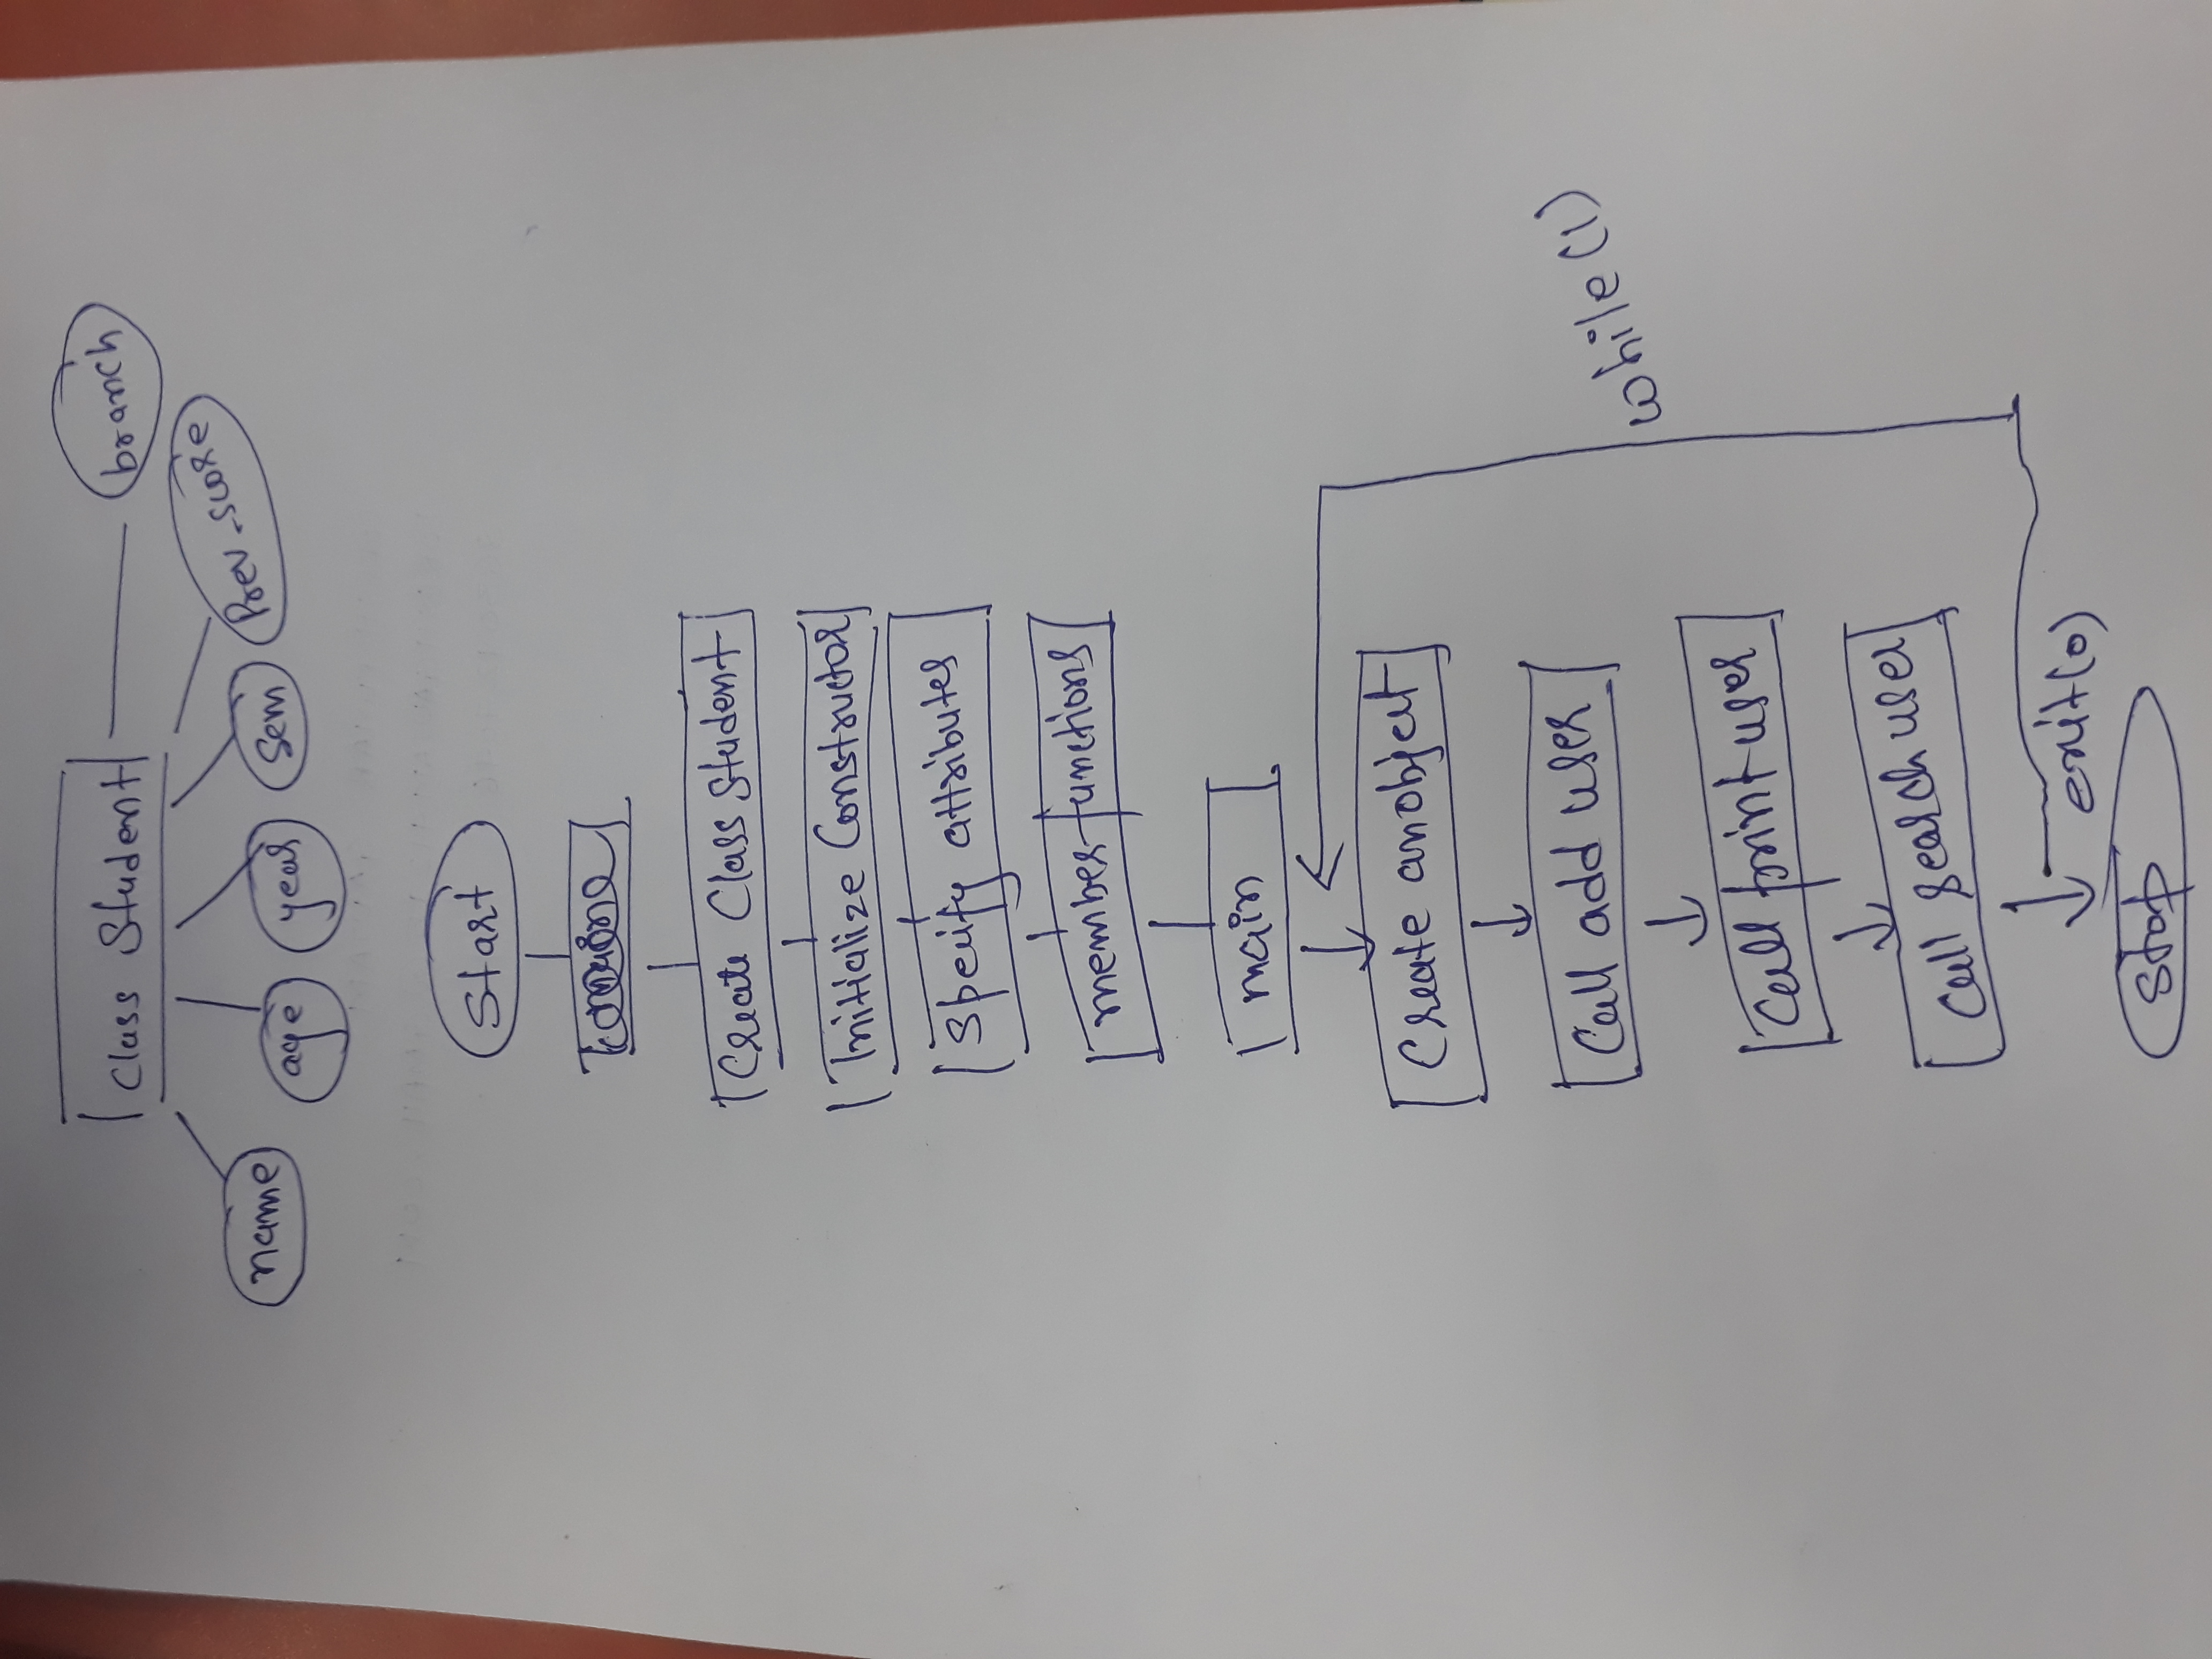 Class Student
branch
name
age
year
Sem
Prev_score
Start
Create Class Student
Initialize Constructor
Specify attributes
member functions
main
Create an object
Call add user
Call print user
Call search user
while(1)
exit(0)
Stop